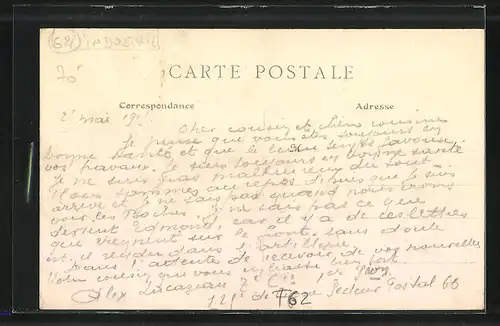 (62) INDUSTRIE
70
CARTE POSTALE
Correspondance
Adresse
2 mai 191
Cher cousin et chère cousine
Je pense que vous êtes toujours en
bonne santé et que le beau temps favorise
vos travaux. Je suis toujours en bonne santé
Je ne suis pas malheureux du tout.
Nous sommes au repos depuis que je suis
arrivé et je ne sais pas quand nous irons
voir les Boches. Je ne sais pas ce que
devient Edmond, car il y a de ces lettres
que viennent sur le front. sans doute
est il rester dans l'artillerie.
Dans l'attente de recevoir de vos nouvelles
Votre cousin que vous embrasse bien fort
Alex Lucazeau 7e Cie 1er
121e de Secteur Postal 66
T62